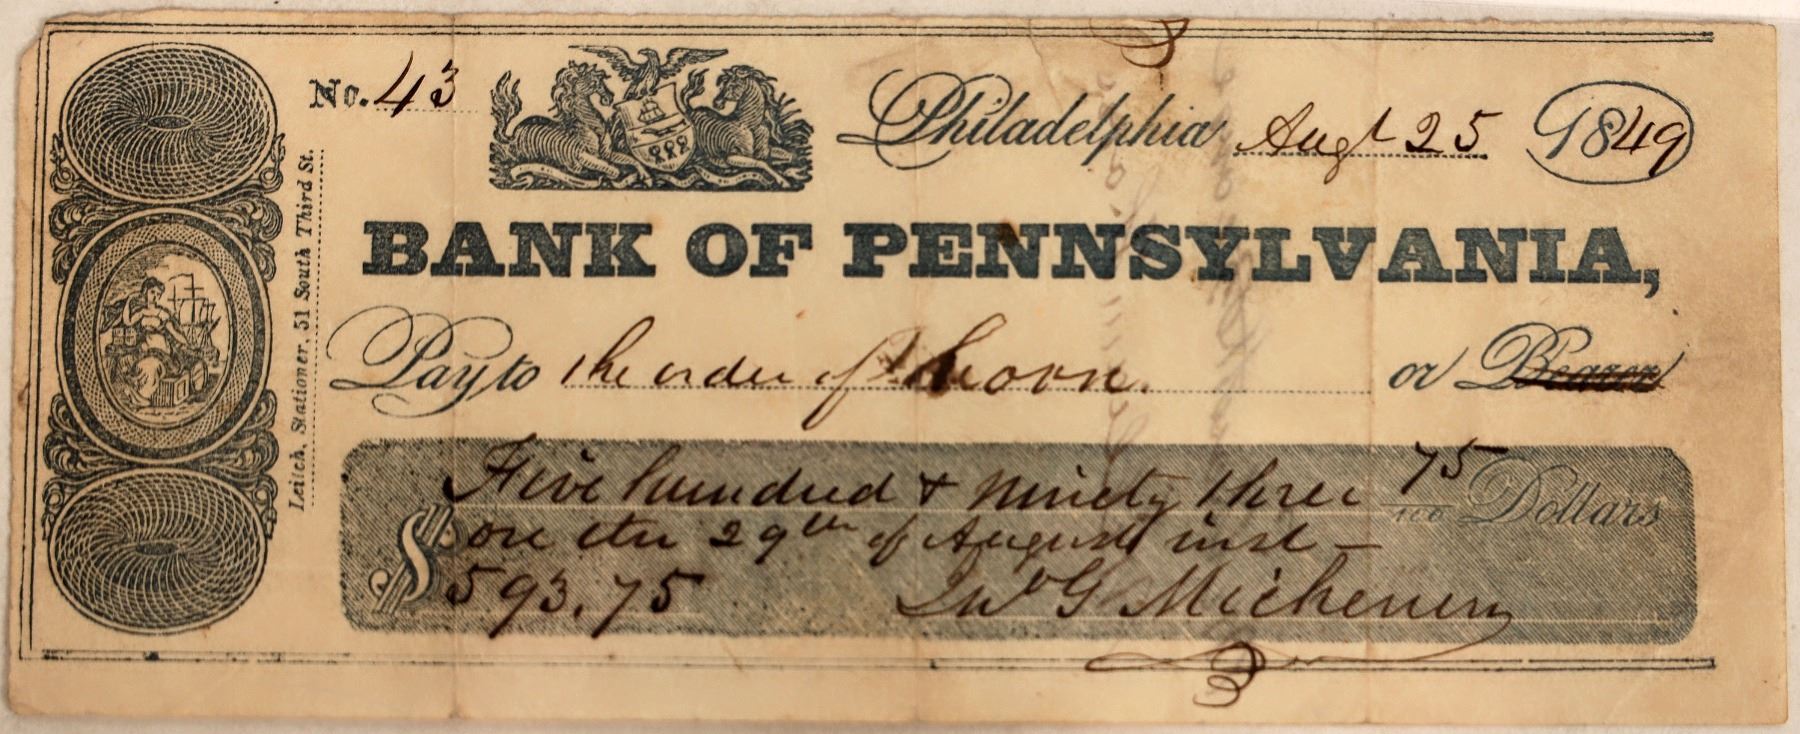 No. 43
Philadelphia Augt 25 1849
BANK OF PENNSYLVANIA,
Pay to the order of or Bearer
Five hundred & ninety three 75/100 Dollars
on the 29th of August inst —
$ 593.75
Jno G Michener
Leitch, Stationer, 51 South Third St.